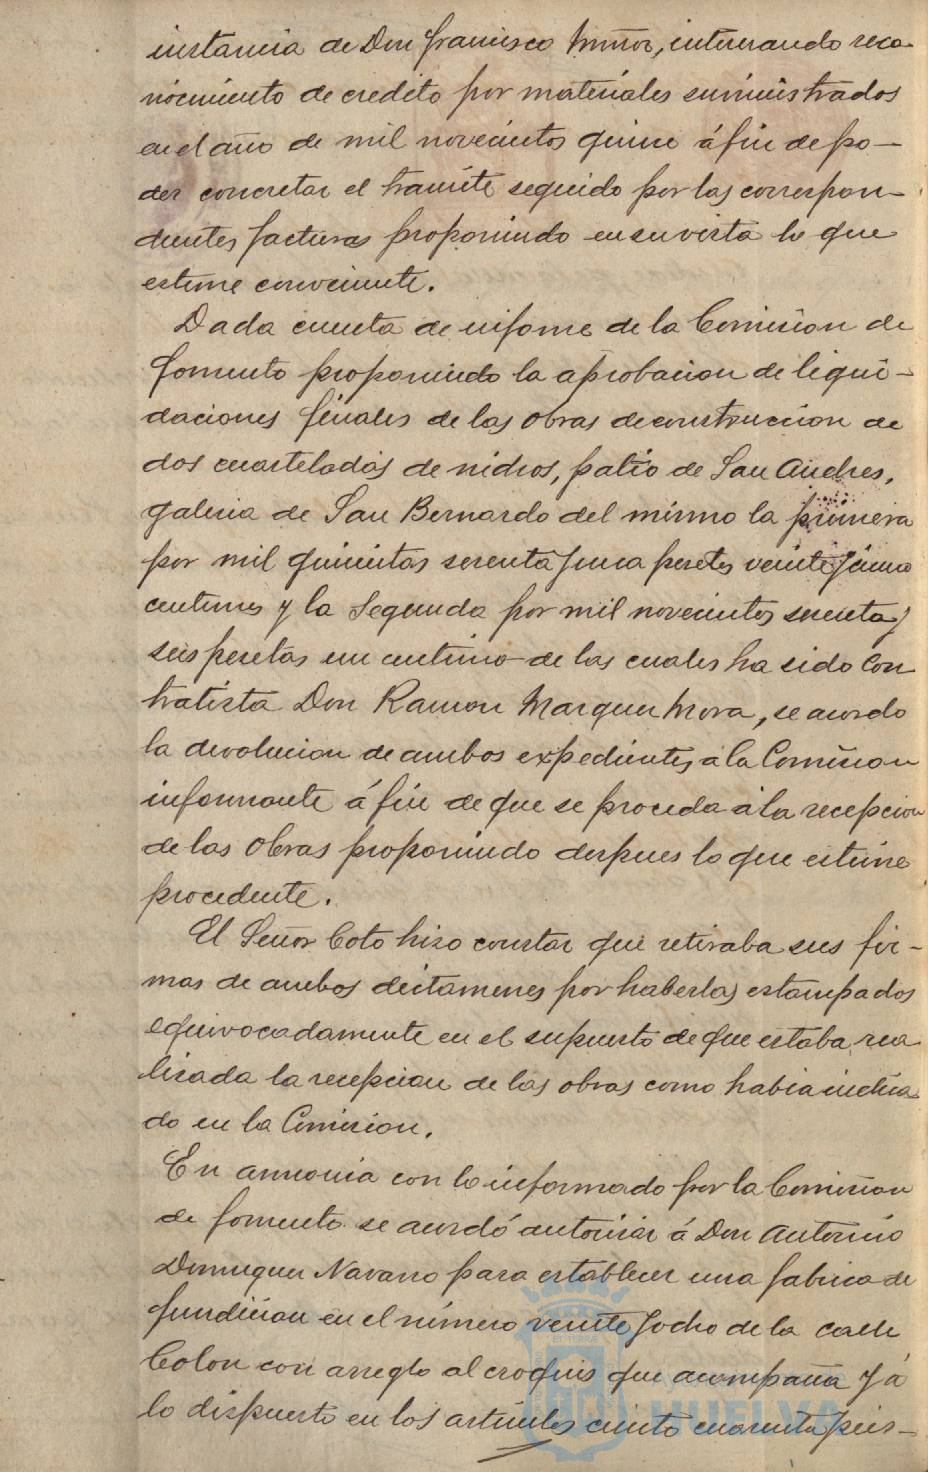 instancia de Don Francisco Muñoz, interesando reco-
nocimiento de credito por materiales suministrados
en el año de mil novecientos quince á fin de po-
der concretar el tramite seguido por las correspon-
dientes facturas proponiendo en su vista lo que
estime conveniente.
Dada cuenta de informe de la Comision de
fomento proponiendo la aprobacion de liqui-
daciones finales de las obras de construccion de
dos cuarteladas de nichos, patio de San Andres,
galeria de San Bernardo del mismo la primera
por mil quinientas sesenta y una pesetas veinte y cinco
centimos y la Segunda por mil novecientas sesenta y
seis pesetas un centimo de las cuales ha sido Con
tratista Don Ramon Marquez Mora, se acordo
la devolucion de ambos expedientes a la Comision
informante á fin de que se proceda á la recepcion
de las Obras proponiendo despues lo que estime
procedente.
El Señor Coto hizo constar que retiraba sus fir-
mas de ambos dictamenes por haberlas estampados
equivocadamente en el supuesto de que estaba rea
lizada la recepcion de las obras como habia indica
do en la Comision.
En armonia con lo informado por la Comision
de fomento se acordó autorizar á Don Antonio
Dominguez Navarro para establecer una fabrica de
fundicion en el número veinte y ocho de la calle
Colon con arreglo al croquis que acompaña y á
lo dispuesto en los articulos ciento cuarenta y seis-
HUELVA